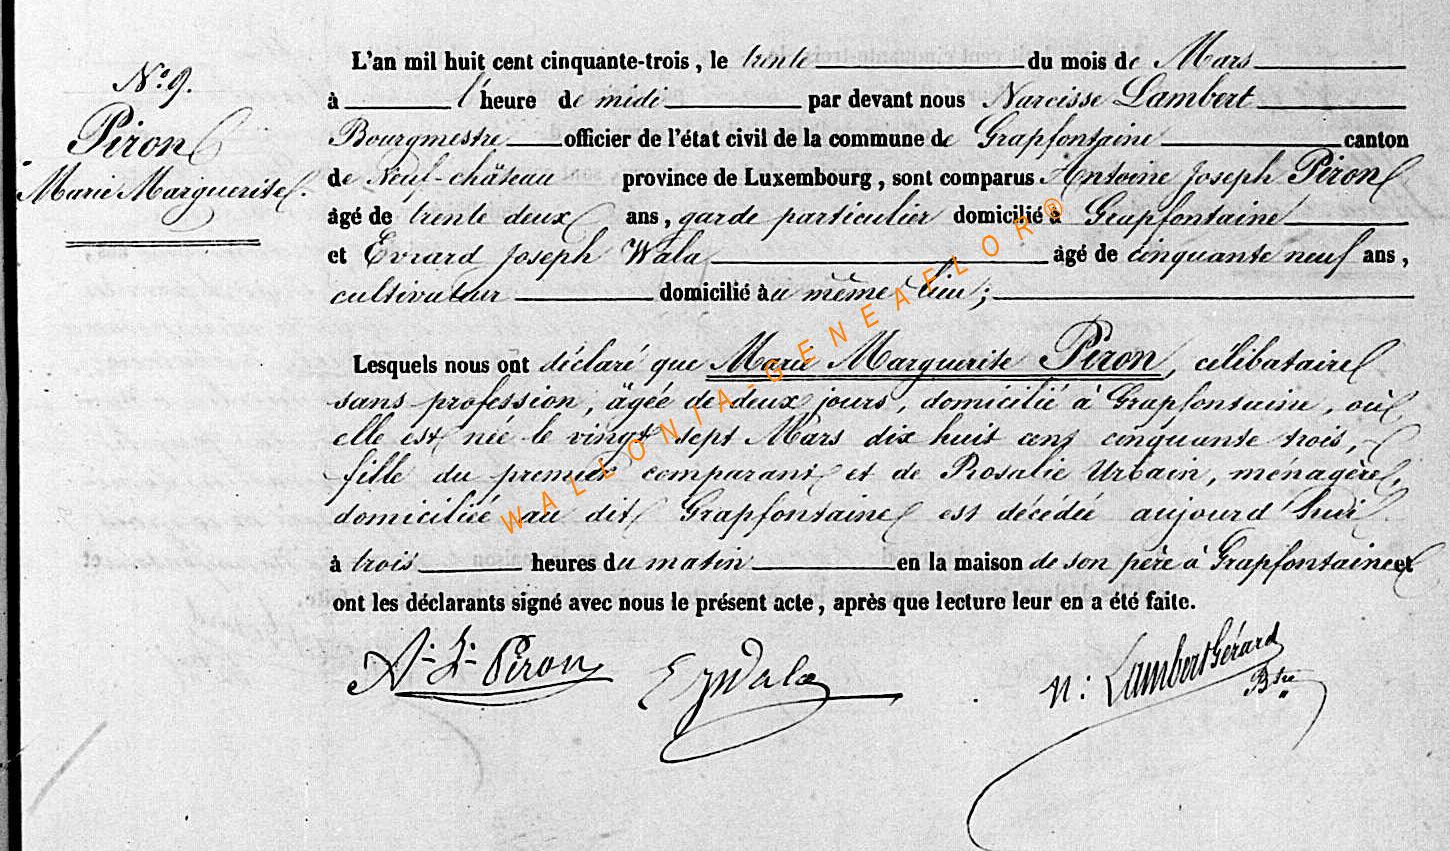 N.º 9.
Piron
Marie Marguerite.
L'an mil huit cent cinquante-trois, le trente du mois de Mars
à l'heure de midi par devant nous Narcisse Lambert
Bourgmestre officier de l'état civil de la commune de Grapfontaine canton
de Neuf-château province de Luxembourg, sont comparus Antoine Joseph Piron
âgé de trente deux ans, garde particulier domicilié à Grapfontaine
et Evrard Joseph Wala âgé de cinquante neuf ans,
cultivateur domicilié au même lieu;
Lesquels nous ont déclaré que Marie Marguerite Piron, célibataire
sans profession, âgée de deux jours, domicilié à Grapfontaine, où
elle est née le vingt sept Mars dix huit cent cinquante trois,
fille du premier comparant et de Rosalie Urbain, ménagère,
domiciliée au dit Grapfontaine est décédée aujourd'hui
à trois heures du matin en la maison de son père à Grapfontaine et
ont les déclarants signé avec nous le présent acte, après que lecture leur en a été faite.
A. J. Piron
E J Wala
N: Lambert Gérard
Btre
WALLONIA-GENEAFLOR®